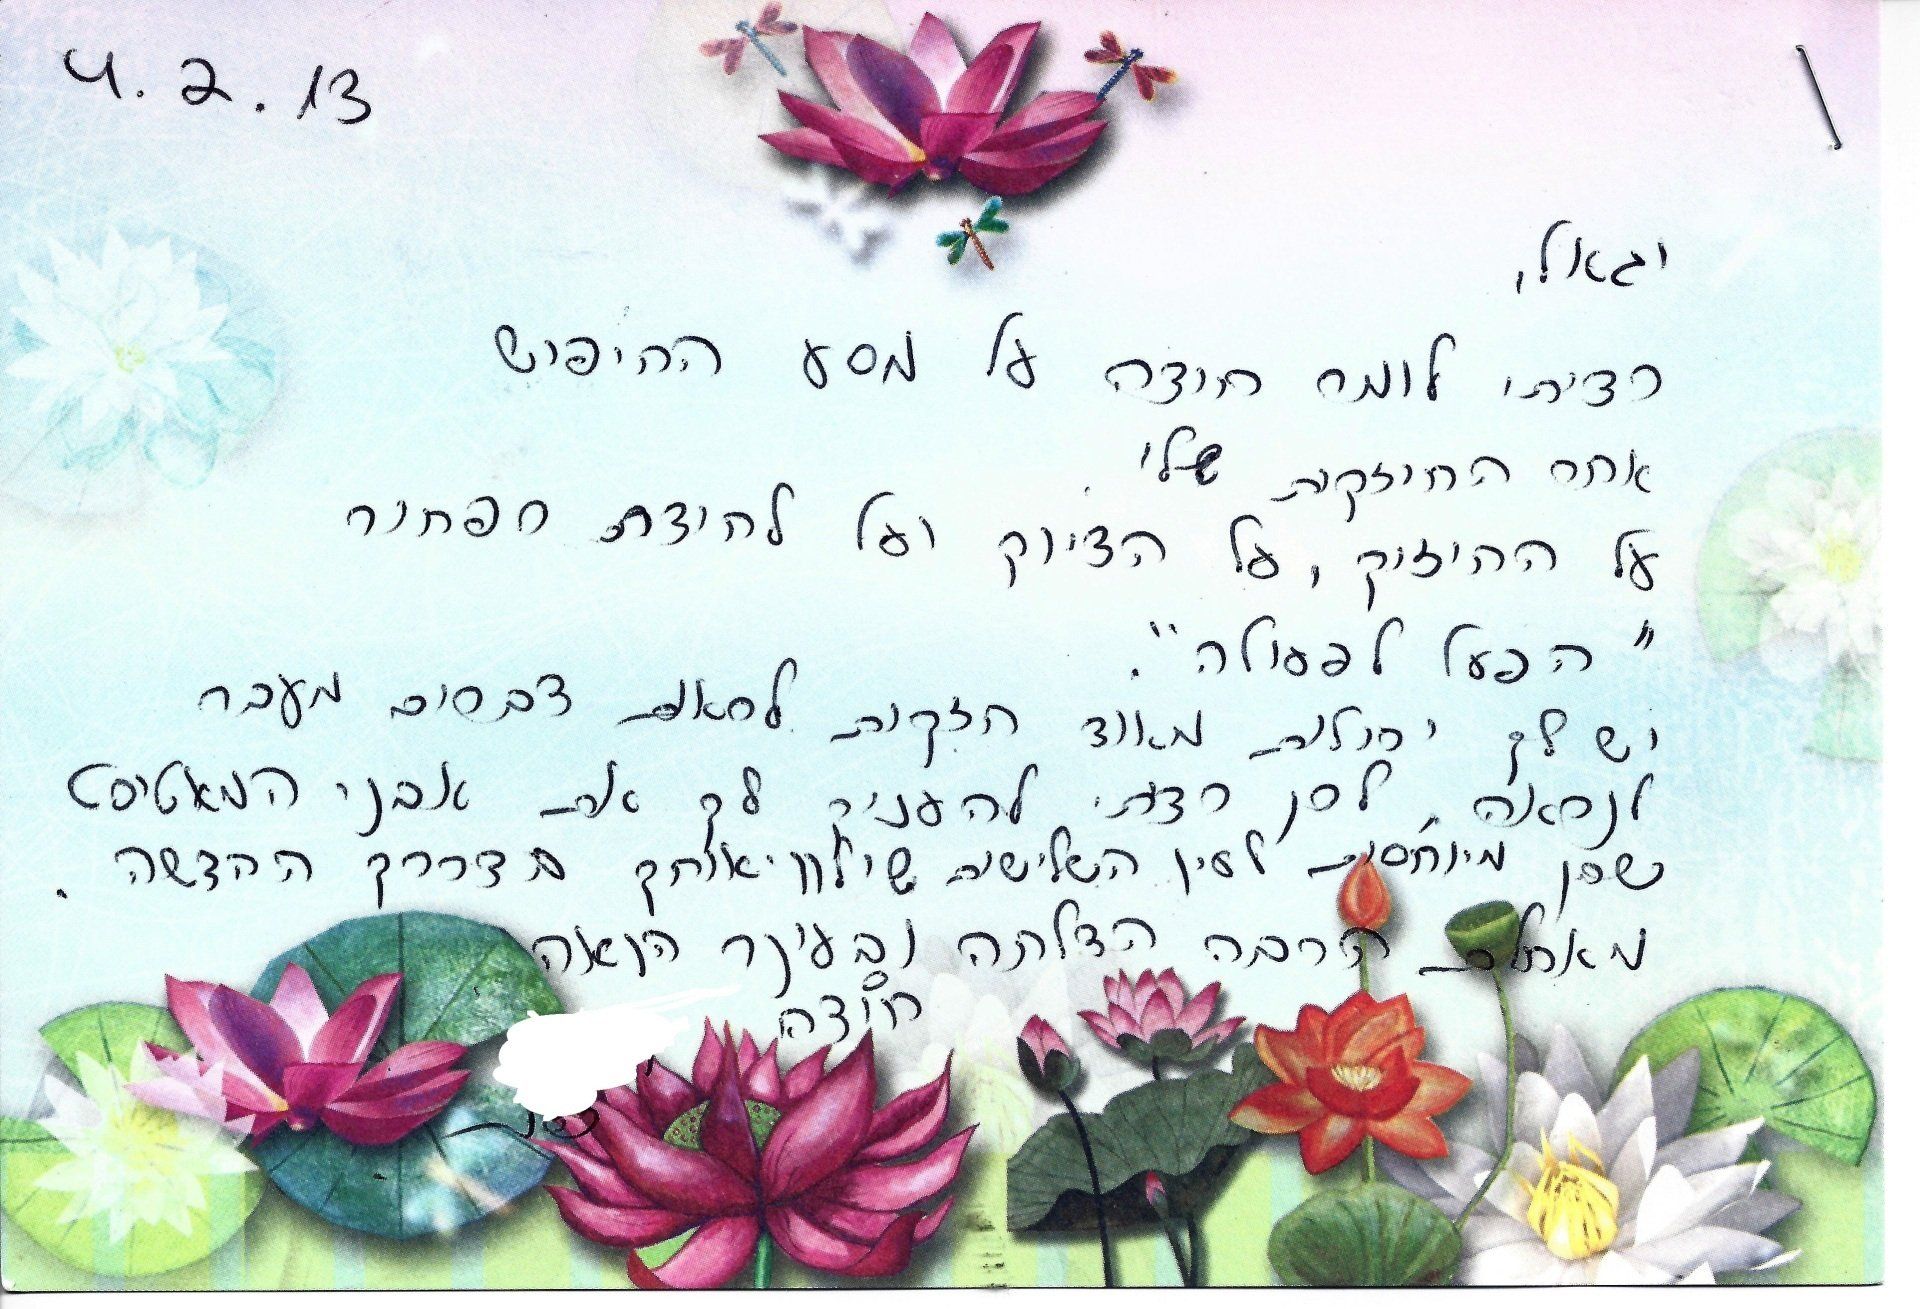 4.2.13
יגאל,
רציתי לומר תודה על מסע החיפוש
אחר החוזקות שלי.
על החיזוק, על הדיוק ועל להיות
"הפעל לפעולה".
יש לך יכולות מאוד חזקות לראות דברים מעבר
לנראה, לכן רציתי להעניק לך את אבני
שהן מיוחסות לעין השלישית אותך בדרכך החדשה.
מאחלת הרבה הצלחה ובעיקר הנאה
תודה